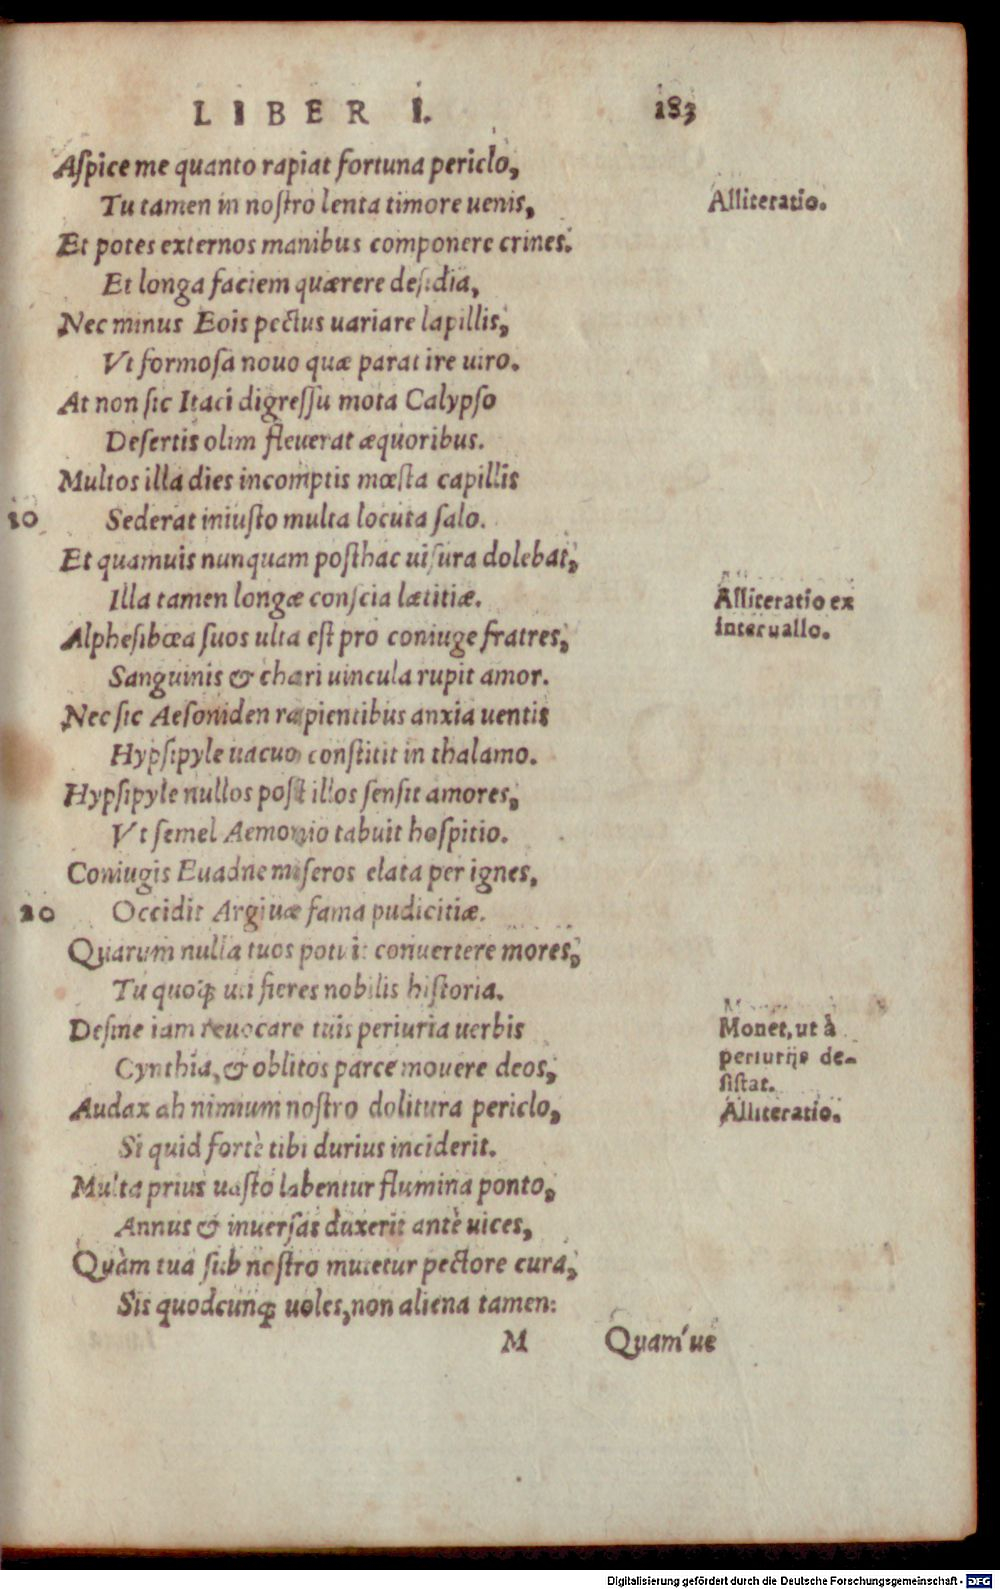 LIBER I. 183
Aſpice me quanto rapiat fortuna periclo,
Tu tamen in noſtro lenta timore uenis,
Alliteratio.
Et potes externos manibus componere crines:
Et longa faciem quærere deſidia,
Nec minus Eois pectus uariare lapillis,
Vt formoſa nouo quæ parat ire uiro.
At non ſic Itaci digreſſu mota Calypſo
Deſertis olim fleuerat æquoribus.
Multos illa dies incomptis mœſta capillis
10 Sederat iniuſto multa locuta ſalo.
Et quamuis nunquam poſthac uiſura dolebat,
Illa tamen longæ conſcia lætitiæ.
Alliteratio ex
interuallo.
Alpheſibœa ſuos ulta eſt pro coniuge fratres,
Sanguinis & chari uincula rupit amor.
Nec ſic Aeſoniden rapientibus anxia uentis
Hypſipyle uacuo conſtitit in thalamo.
Hypſipyle nullos poſt illos ſenſit amores,
Vt ſemel Aemonio tabuit hoſpitio.
Coniugis Euadne miſeros elata per ignes,
20 Occidit Argiuæ fama pudicitiæ.
Quarum nulla tuos potuit conuertere mores,
Tu quoq; uti fieres nobilis hiſtoria.
Deſine iam reuocare tuis periuria uerbis
Cynthia, & oblitos parce mouere deos,
Monet, ut à
periurijs de-
ſiſtat.
Audax ah nimium noſtro dolitura periclo,
Alliteratio.
Si quid fortè tibi durius inciderit.
Multa prius uaſto labentur flumina ponto,
Annus & inuerſas duxerit antè uices,
Quàm tua ſub noſtro mutetur pectore cura,
Sis quodcunq; uoles, non aliena tamen:
M Quam'ue
Digitalisierung gefördert durch die Deutsche Forschungsgemeinschaft - DFG